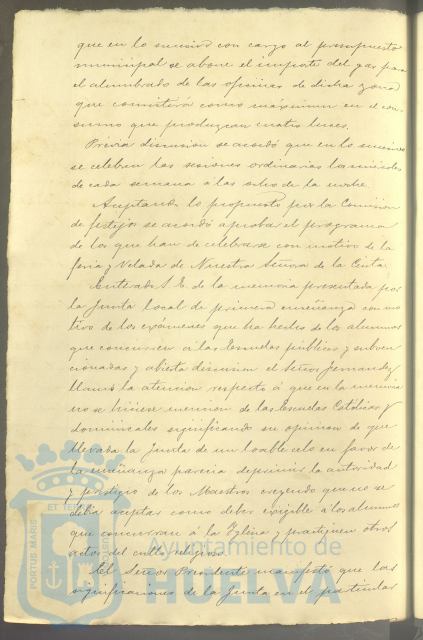 que en lo sucesivo con cargo al presupuesto
municipal se abone el importe del gas para
el alumbrado de las oficinas de dicha zona
que consistirá como máximun en el con-
sumo que produzcan cuatro luces.
Prévia discusion se acordó que en lo sucesivo
se celebren las sesiones ordinarias los miércoles
de cada semana á las ocho de la noche.
Aceptando lo propuesto por la Comision
de festejos se acordó aprobar el programa
de los que han de celebrarse con motivo de la
feria y Velada de Nuestra Señora de la Cinta.
Enterado S.E. de la memoria presentada por
la Junta local de primera enseñanza con mo-
tivo de los exámenes que ha hecho de los alumnos
que concurren á las Escuelas públicas y subven-
cionadas y abierta discusion el Señor Fernandez
llamó la atencion respecto á que en la memoria
no se hiciese mencion de las Escuelas Católicas y
dominicales significando su opinion de que
llevada la Junta de un loable celo en favor de
la enseñanza parecia deprimir la autoridad
y prestigio de los Maestros creyendo que no se
debia aceptar como deber exigible á los alumnos
que concurran á la Iglesia y practiquen otros
actos del culto religioso.
El Señor Presidente manifestó que las
significaciones de la Junta en el particular
PORTUS MARIS
ET TER
Ayuntamiento de
HUELVA